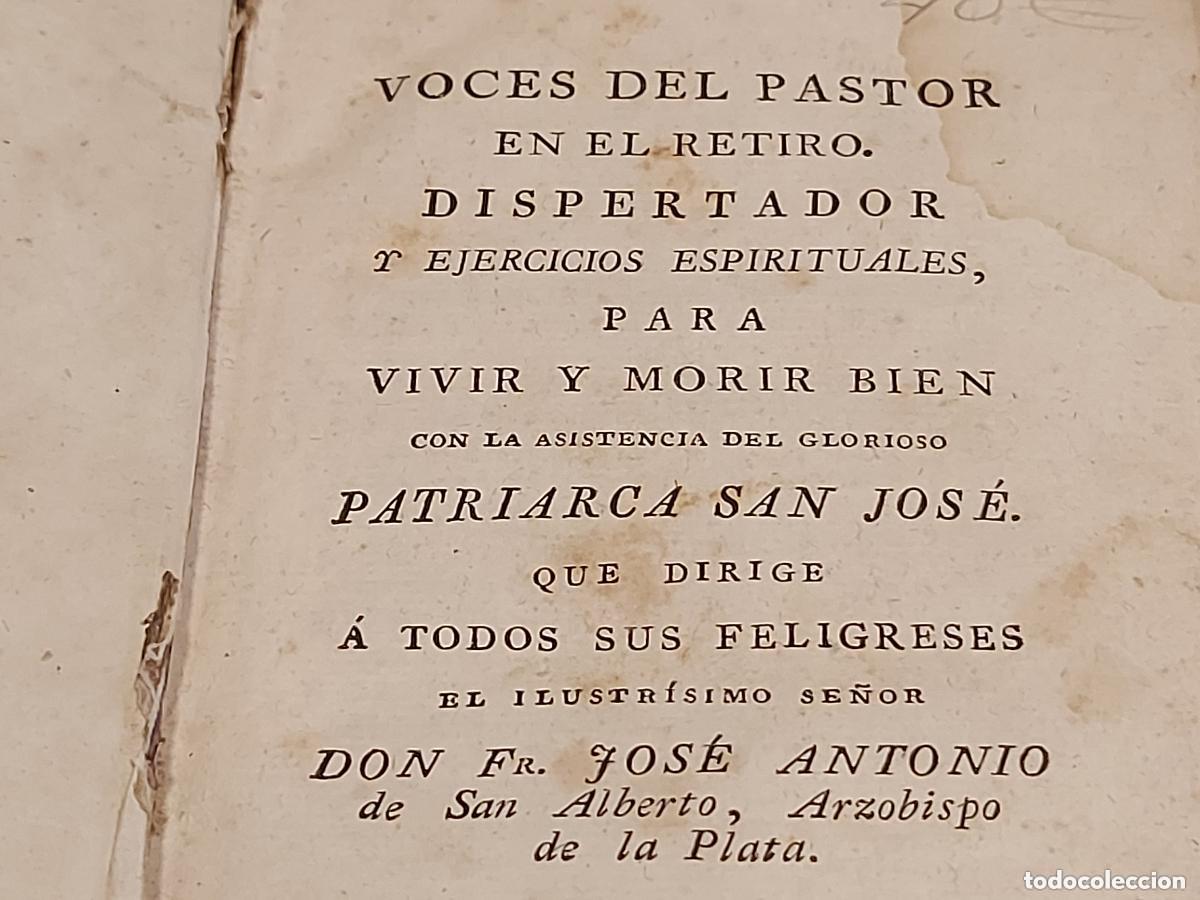 VOCES DEL PASTOR
EN EL RETIRO.
DISPERTADOR
Y EJERCICIOS ESPIRITUALES,
PARA
VIVIR Y MORIR BIEN
CON LA ASISTENCIA DEL GLORIOSO
PATRIARCA SAN JOSÉ.
QUE DIRIGE
Á TODOS SUS FELIGRESES
EL ILUSTRÍSIMO SEÑOR
DON FR. JOSÉ ANTONIO
de San Alberto, Arzobispo
de la Plata.
todocoleccion